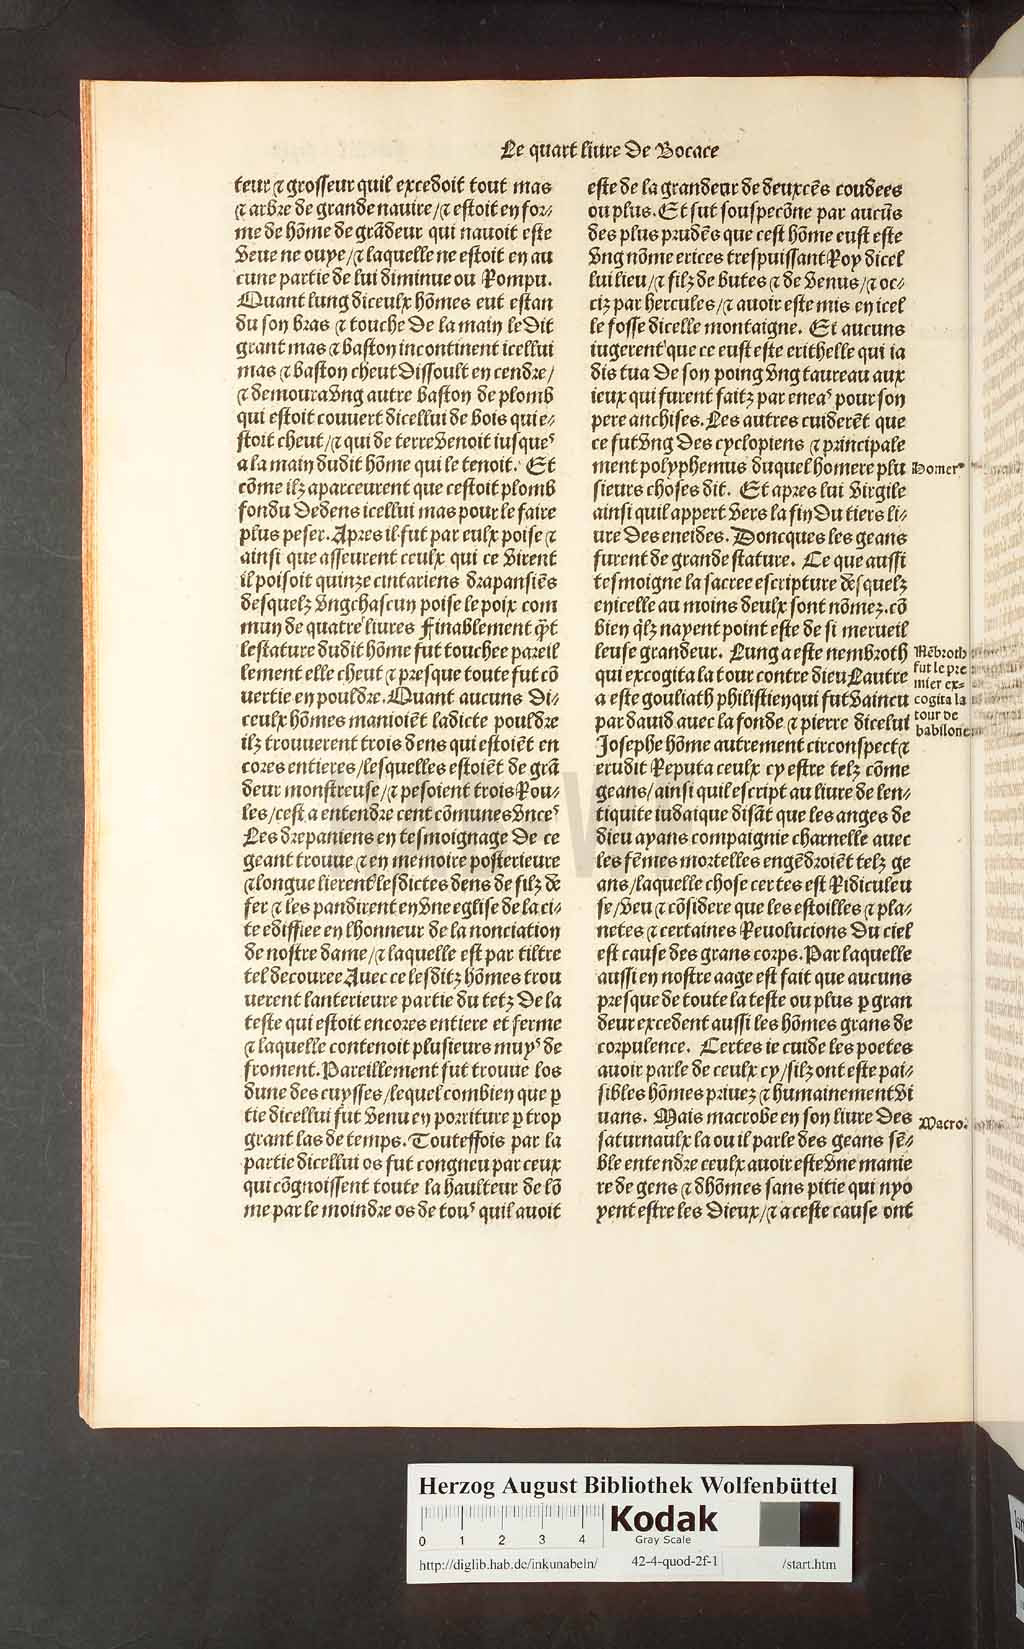 Le quart liure de Bocace
teur ⁊ grosseur quil excedoit tout mas
⁊ arbre de grande nauire/⁊ estoit en for⸗
me de hõme de grãdeur qui nauoit este
veue ne ouye/⁊ laquelle ne estoit en au
cune partie de lui diminue ou rompu.
Quant lung diceulx hõmes eut estan
du son bras ⁊ touche de la main ledit
grant mas ⁊ baston incontinent icellui
mas ⁊ baston cheut dissoult en cendre/
⁊ demoura vng autre baston de plomb
qui estoit couuert dicellui de bois qui e⸗
stoit cheut/⁊ qui de terre venoit iusqueˢ
a la main dudit hõme qui le tenoit. Et
cõme ilz aparceurent que cestoit plomb
fondu dedens icellui mas pour le faire
plus peser. Apres il fut par eulx poise ⁊
ainsi que asseurent ceulx qui ce virent
il poisoit quinze cintariens drapansiẽs
desquelz vngchascun poise le poix com
mun de quatre liures Finablement q̃t
lestature dudit hõme fut touchee pareil
lement elle cheut ⁊ presque toute fut cõ
uertie en pouldre. Quant aucuns di⸗
ceulx hõmes manioiẽt ladicte pouldre
ilz trouuerent trois dens qui estoiẽt en
cores entieres/lesquelles estoiẽt de grã
deur monstreuse/⁊ pesoient trois rou⸗
les/cest a entendre cent cõmunes vnceˢ
Les drepaniens en tesmoignage de ce
geant trouue ⁊ en memoire posterieure
⁊ longue lierent lesdictes dens de filz de
fer ⁊ les pandirent en vne eglise de la ci⸗
te ediffiee en lhonneur de la nonciation
de nostre dame/⁊ laquelle est par tiltre
tel decouree Auec ce lesditz hõmes trou
uerent lanterieure partie du tetz de la
teste qui estoit encores entiere et ferme
⁊ laquelle contenoit plusieurs muyˢ de
froment. Pareillement fut trouue los
dune des cuysses/lequel combien que ꝑ
tie dicellui fut venu en porriture ꝑ trop
grant las de temps. Touteffois par la
partie dicellui os fut congneu par ceux
qui cõgnoissent toute la haulteur de lõ
me par le moindre os de touˢ quil auoit
este de la grandeur de deuxcẽs coudees
ou plus. Et fut souspecõne par aucũs
des plus prudẽs que cest hõme eust este
vng nõme erices trespuissant roy dicel
lui lieu/⁊ filz de butes ⁊ de venus/⁊ oc⸗
ciz par hercules/⁊ auoir este mis en icel
le fosse dicelle montaigne. Et aucuns
iugerent que ce eust este erithelle qui ia
dis tua de son poing vng taureau aux
ieux qui furent faitz par eneaˢ pour son
pere anchises. Les autres cuiderẽt que
ce fut vng des cyclopiens ⁊ principale
ment polyphemus duquel homere plu
sieurs choses dit. Et apres lui virgile
ainsi quil appert vers la fin du tiers li⸗
ure des eneides. Doncques les geans
furent de grande stature. Ce que aussi
tesmoigne la sacree escripture desquelz
en icelle au moins deulx sont nõmez. cõ
bien q̃lz nayent point este de si merueil
leuse grandeur. Lung a este nembroth
qui excogita la tour contre dieu Lautre
a este gouliath philistien qui fut vaincu
par dauid auec la fonde ⁊ pierre dicelui
Josephe hõme autrement circonspect ⁊
erudit reputa ceulx cy estre telz cõme
geans/ainsi quil escript au liure de len⸗
tiquite iudaique disãt que les anges de
dieu ayans compaignie charnelle auec
les fẽmes mortelles engẽdroiẽt telz ge
ans/laquelle chose certes est ridiculeu
se/veu ⁊ cõsidere que les estoilles ⁊ pla⸗
netes ⁊ certaines reuolucions du ciel
est cause des grans corps. Par laquelle
aussi en nostre aage est fait que aucuns
presque de toute la teste ou plus ꝑ gran
deur excedent aussi les hõmes grans de
corpulence. Certes ie cuide les poetes
auoir parle de ceulx cy/silz ont este pai⸗
sibles hõmes priuez ⁊ humainement vi
uans. Mais macrobe en son liure des
saturnaulx la ou il parle des geans sẽ⸗
ble entendre ceulx auoir este vne manie
re de gens ⁊ dhõmes sans pitie qui nyo
yent estre les dieux/⁊ a ceste cause ont
Homerᵉ
Nẽbroth
fut le pre
mier ex⸗
cogita la
tour de
babilone
Macro.
Herzog August Bibliothek Wolfenbüttel
0 1 2 3 4
Kodak
Gray Scale
http://diglib.hab.de/inkunabeln/ 42-4-quod-2f-1 /start.htm